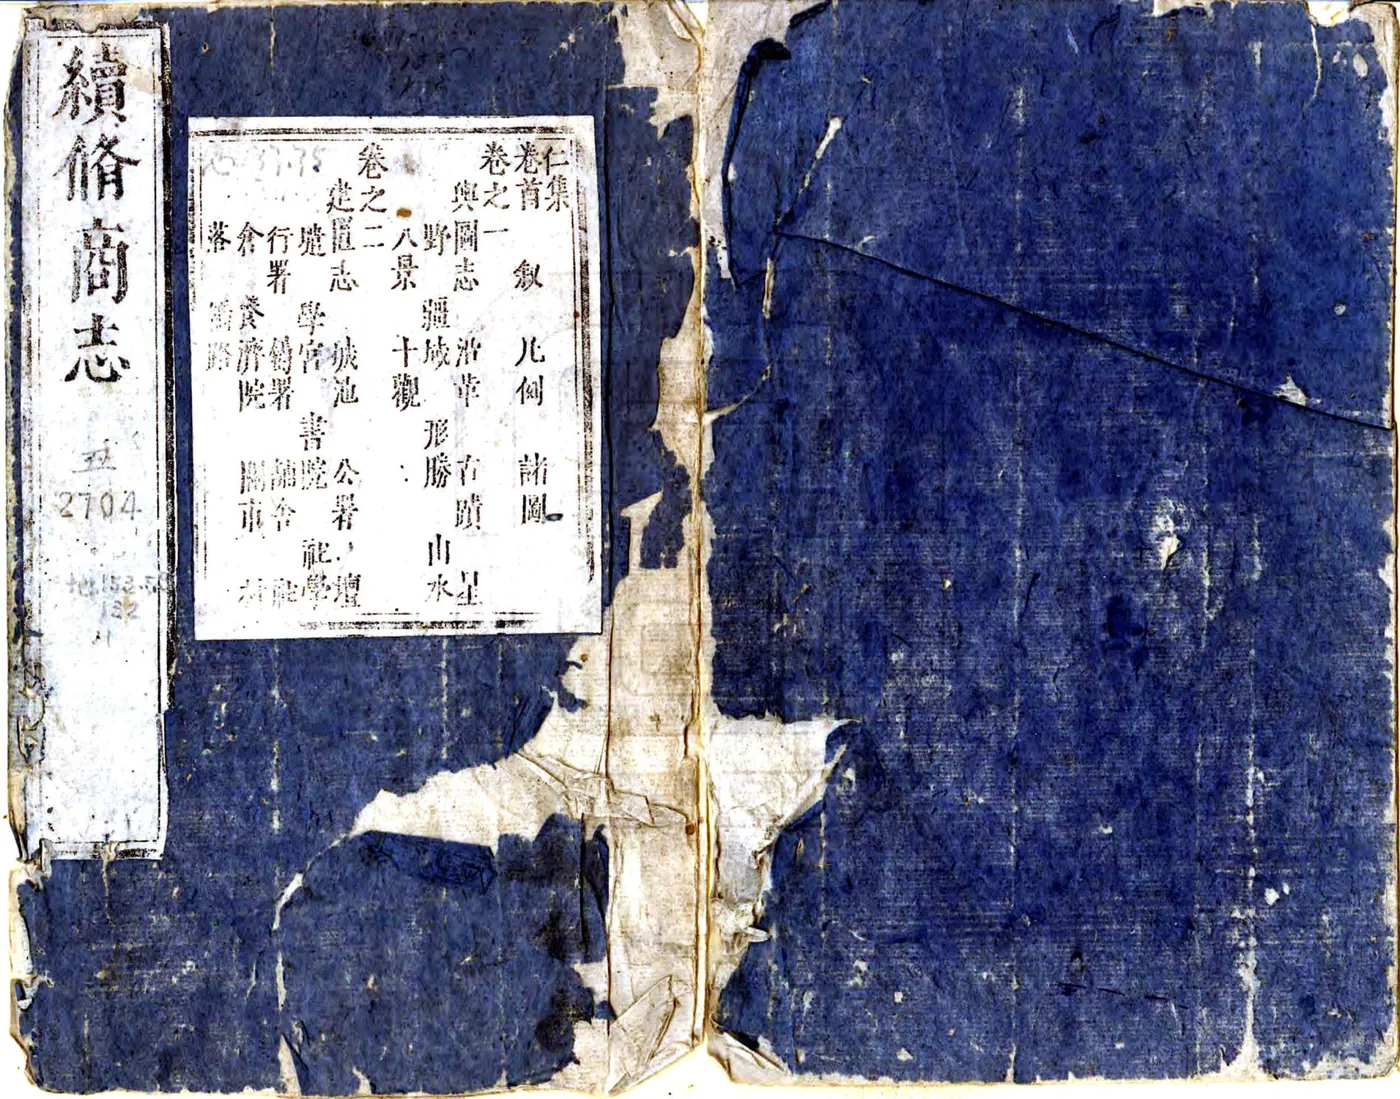 續脩商志
2704
仁集
卷首 叙 凡例 諸圖
卷之一
輿圖志 沿革 古蹟 星
野 疆域 形勝 山水
八景 十觀
卷之二
建置志 城池 公署 壇
壝 學宮 書院 社學
行署 署 舖舍 社
倉 養濟院 關市 村
落 路